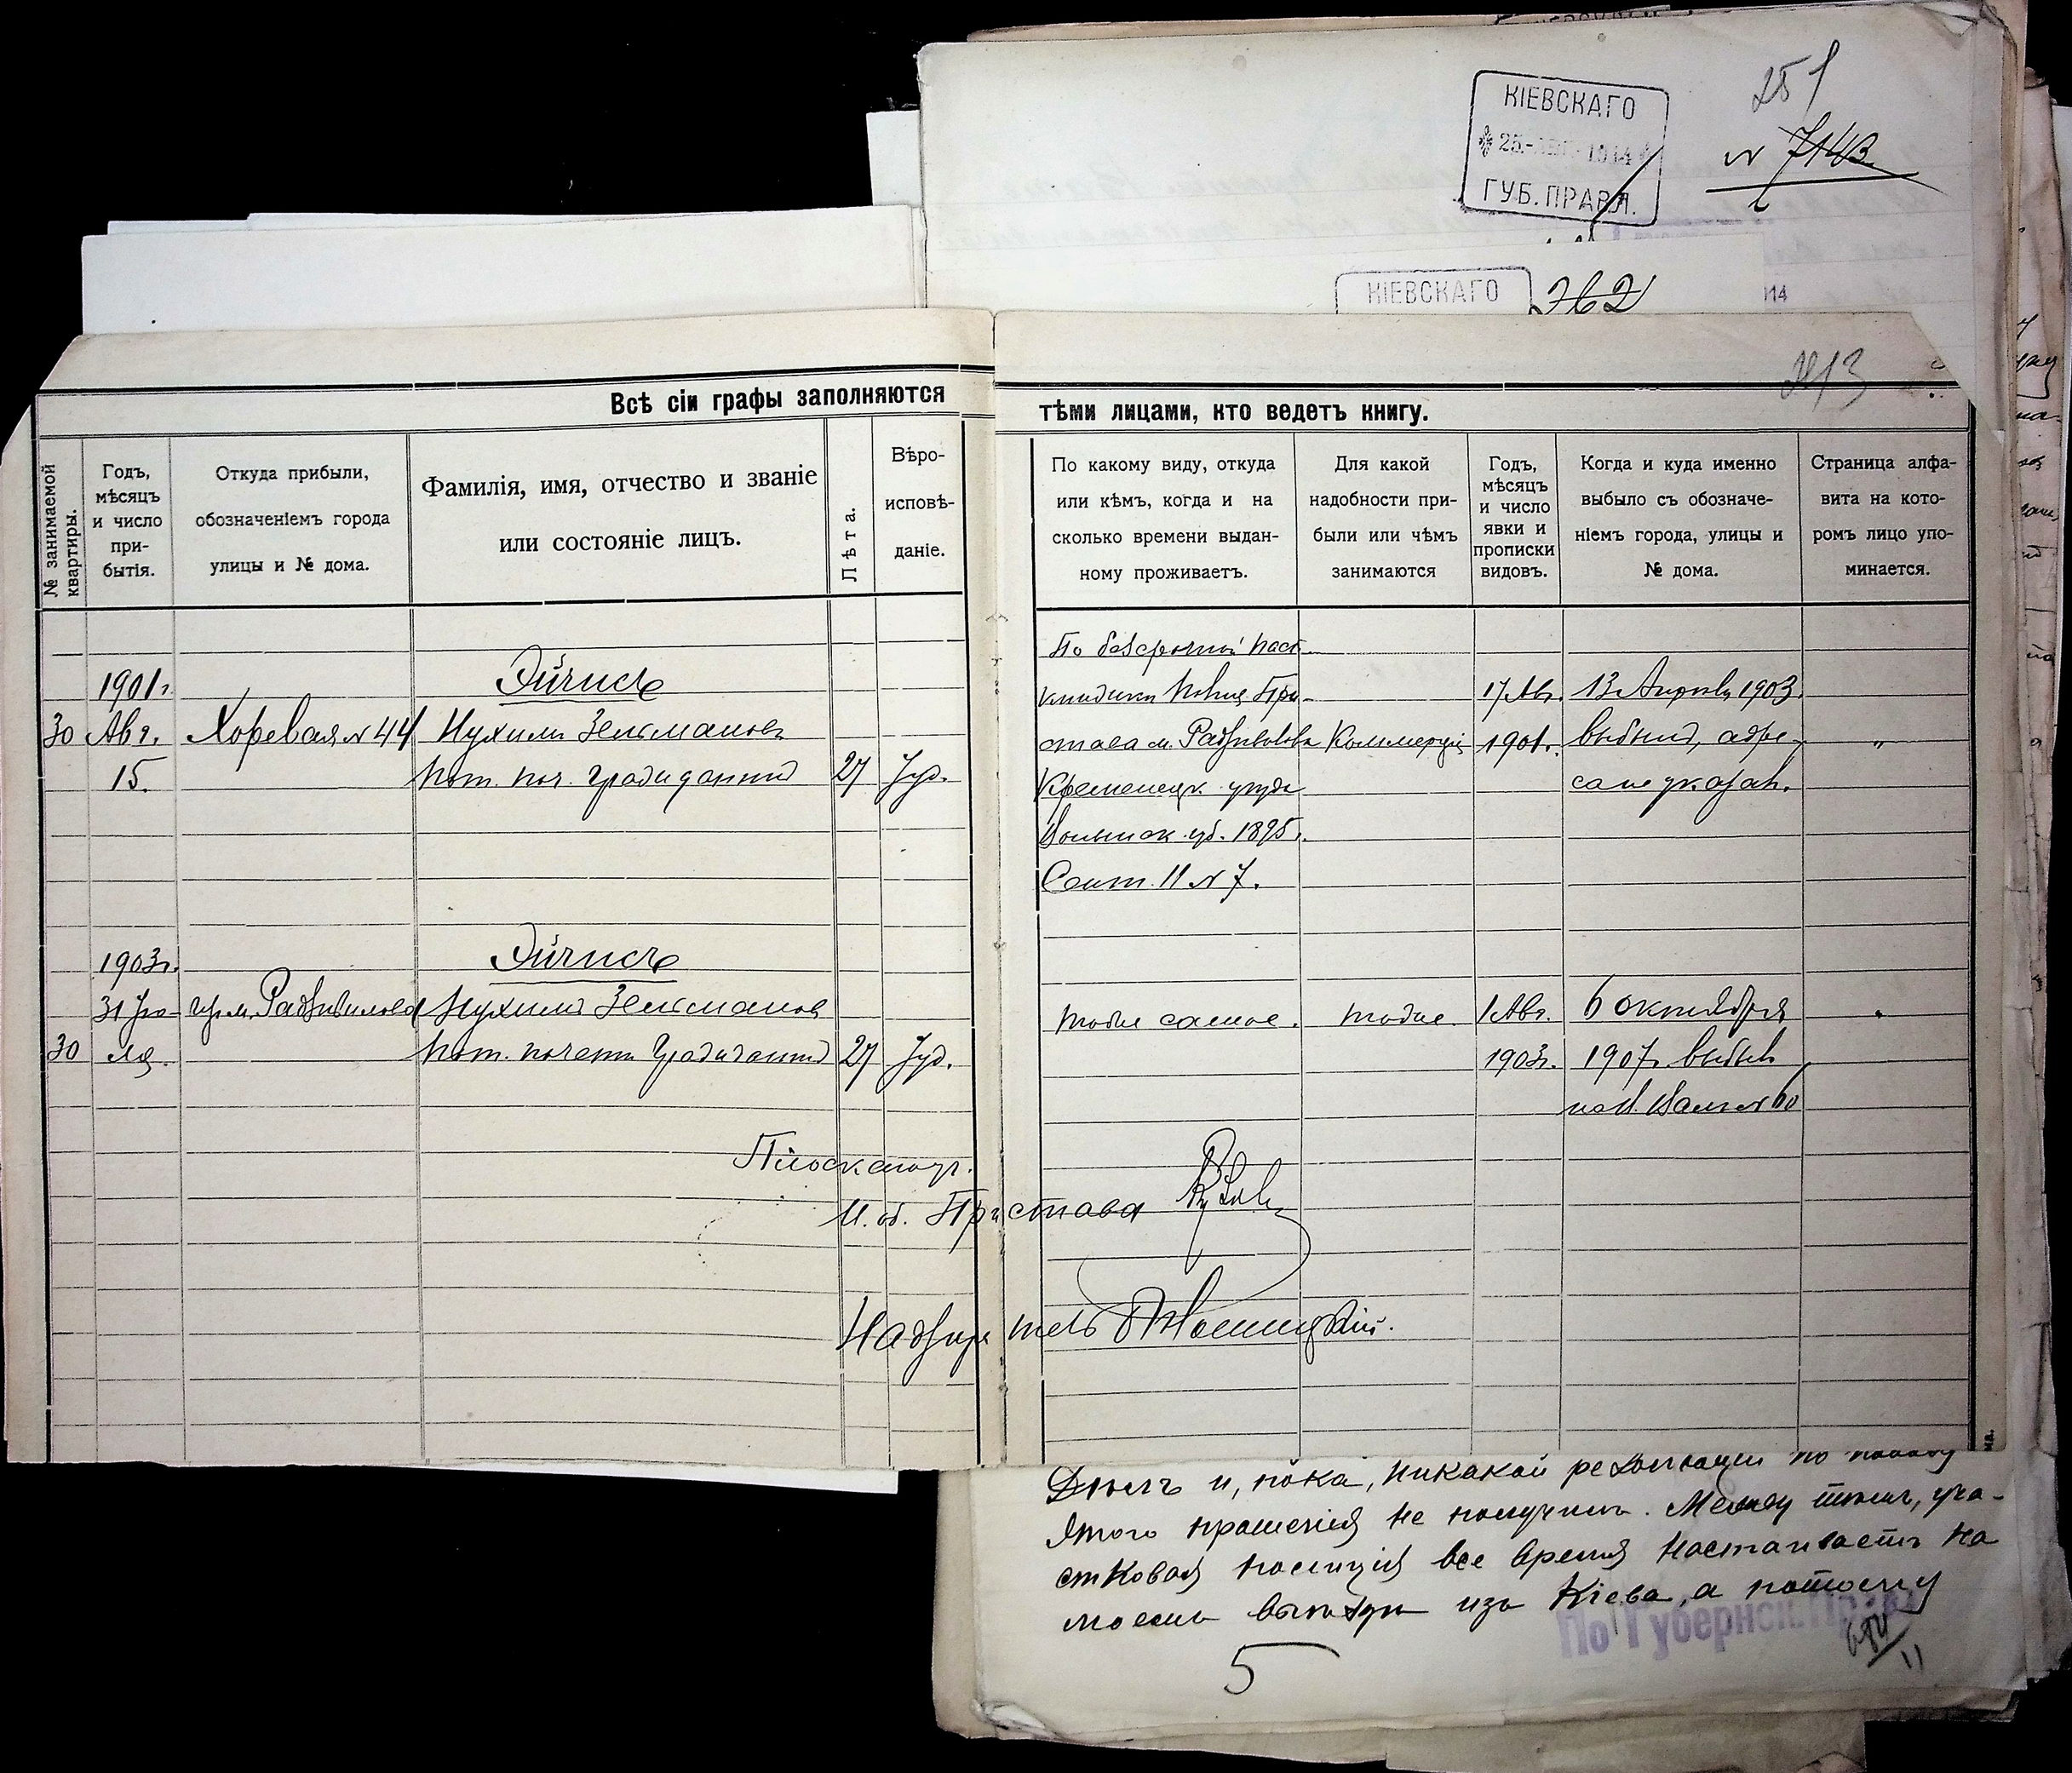 251
КІЕВСКАГО
ГУБ. ПРАВЛ.
N 7143
КІЕВСКАГО
762
И4
Всѣ сіи графы заполняются тѣми лицами, кто ведетъ книгу.
№ занимаемой квартиры.
Годъ, мѣсяцъ и число при-бытія.
Откуда прибыли, обозначеніемъ города улицы и № дома.
Фамилія, имя, отчество и званіе или состояніе лицъ.
Лѣта.
Вѣро-исповѣ-даніе.
По какому виду, откуда или кѣмъ, когда и на сколько времени выдан-ному проживаетъ.
Для какой надобности при-были или чѣмъ занимаются
Годъ, мѣсяцъ и число явки и прописки видовъ.
Когда и куда именно выбыло съ обозначе-ніемъ города, улицы и № дома.
Страница алфа-вита на кото-ромъ лицо упо-минается.
30
1901г.
Авг.
15.
Хоревая N 44
Эйчисъ
Нухимъ Зельмановъ
пот. поч. гражданинъ
27
Іуд.
По безсрочной пасп.
книжки Помощ. При-
става м. Радзивилова
Кременецк. уѣзда
Волынск. губ. 1895г.
Сент. 11 N 7.
Коммерція
17 Авг.
1901г.
13 Апрѣля 1903.
выбылъ, адре-
са не указав.
"
30
1903г.
31 Ію-
ля
м. Радзивилова
Эйчисъ
Нухимъ Зельманов
Пот. почетн гражданинъ
27
Іуд.
тоже самое.
тоже.
1 Авг.
1903г.
6 октября
1907г. выбылъ
по В. Валъ N 60
"
Плоскаго уч.
И. об. Пристава
Надзиратель
Дѣлъ и, пока, никакой резолюціи по поводу
этого прошенія не получилъ. Между тѣмъ, уча-
стковая полиція все время настаиваетъ на
моемъ выѣздѣ изъ Кіева, а потому
По Губернск.
5